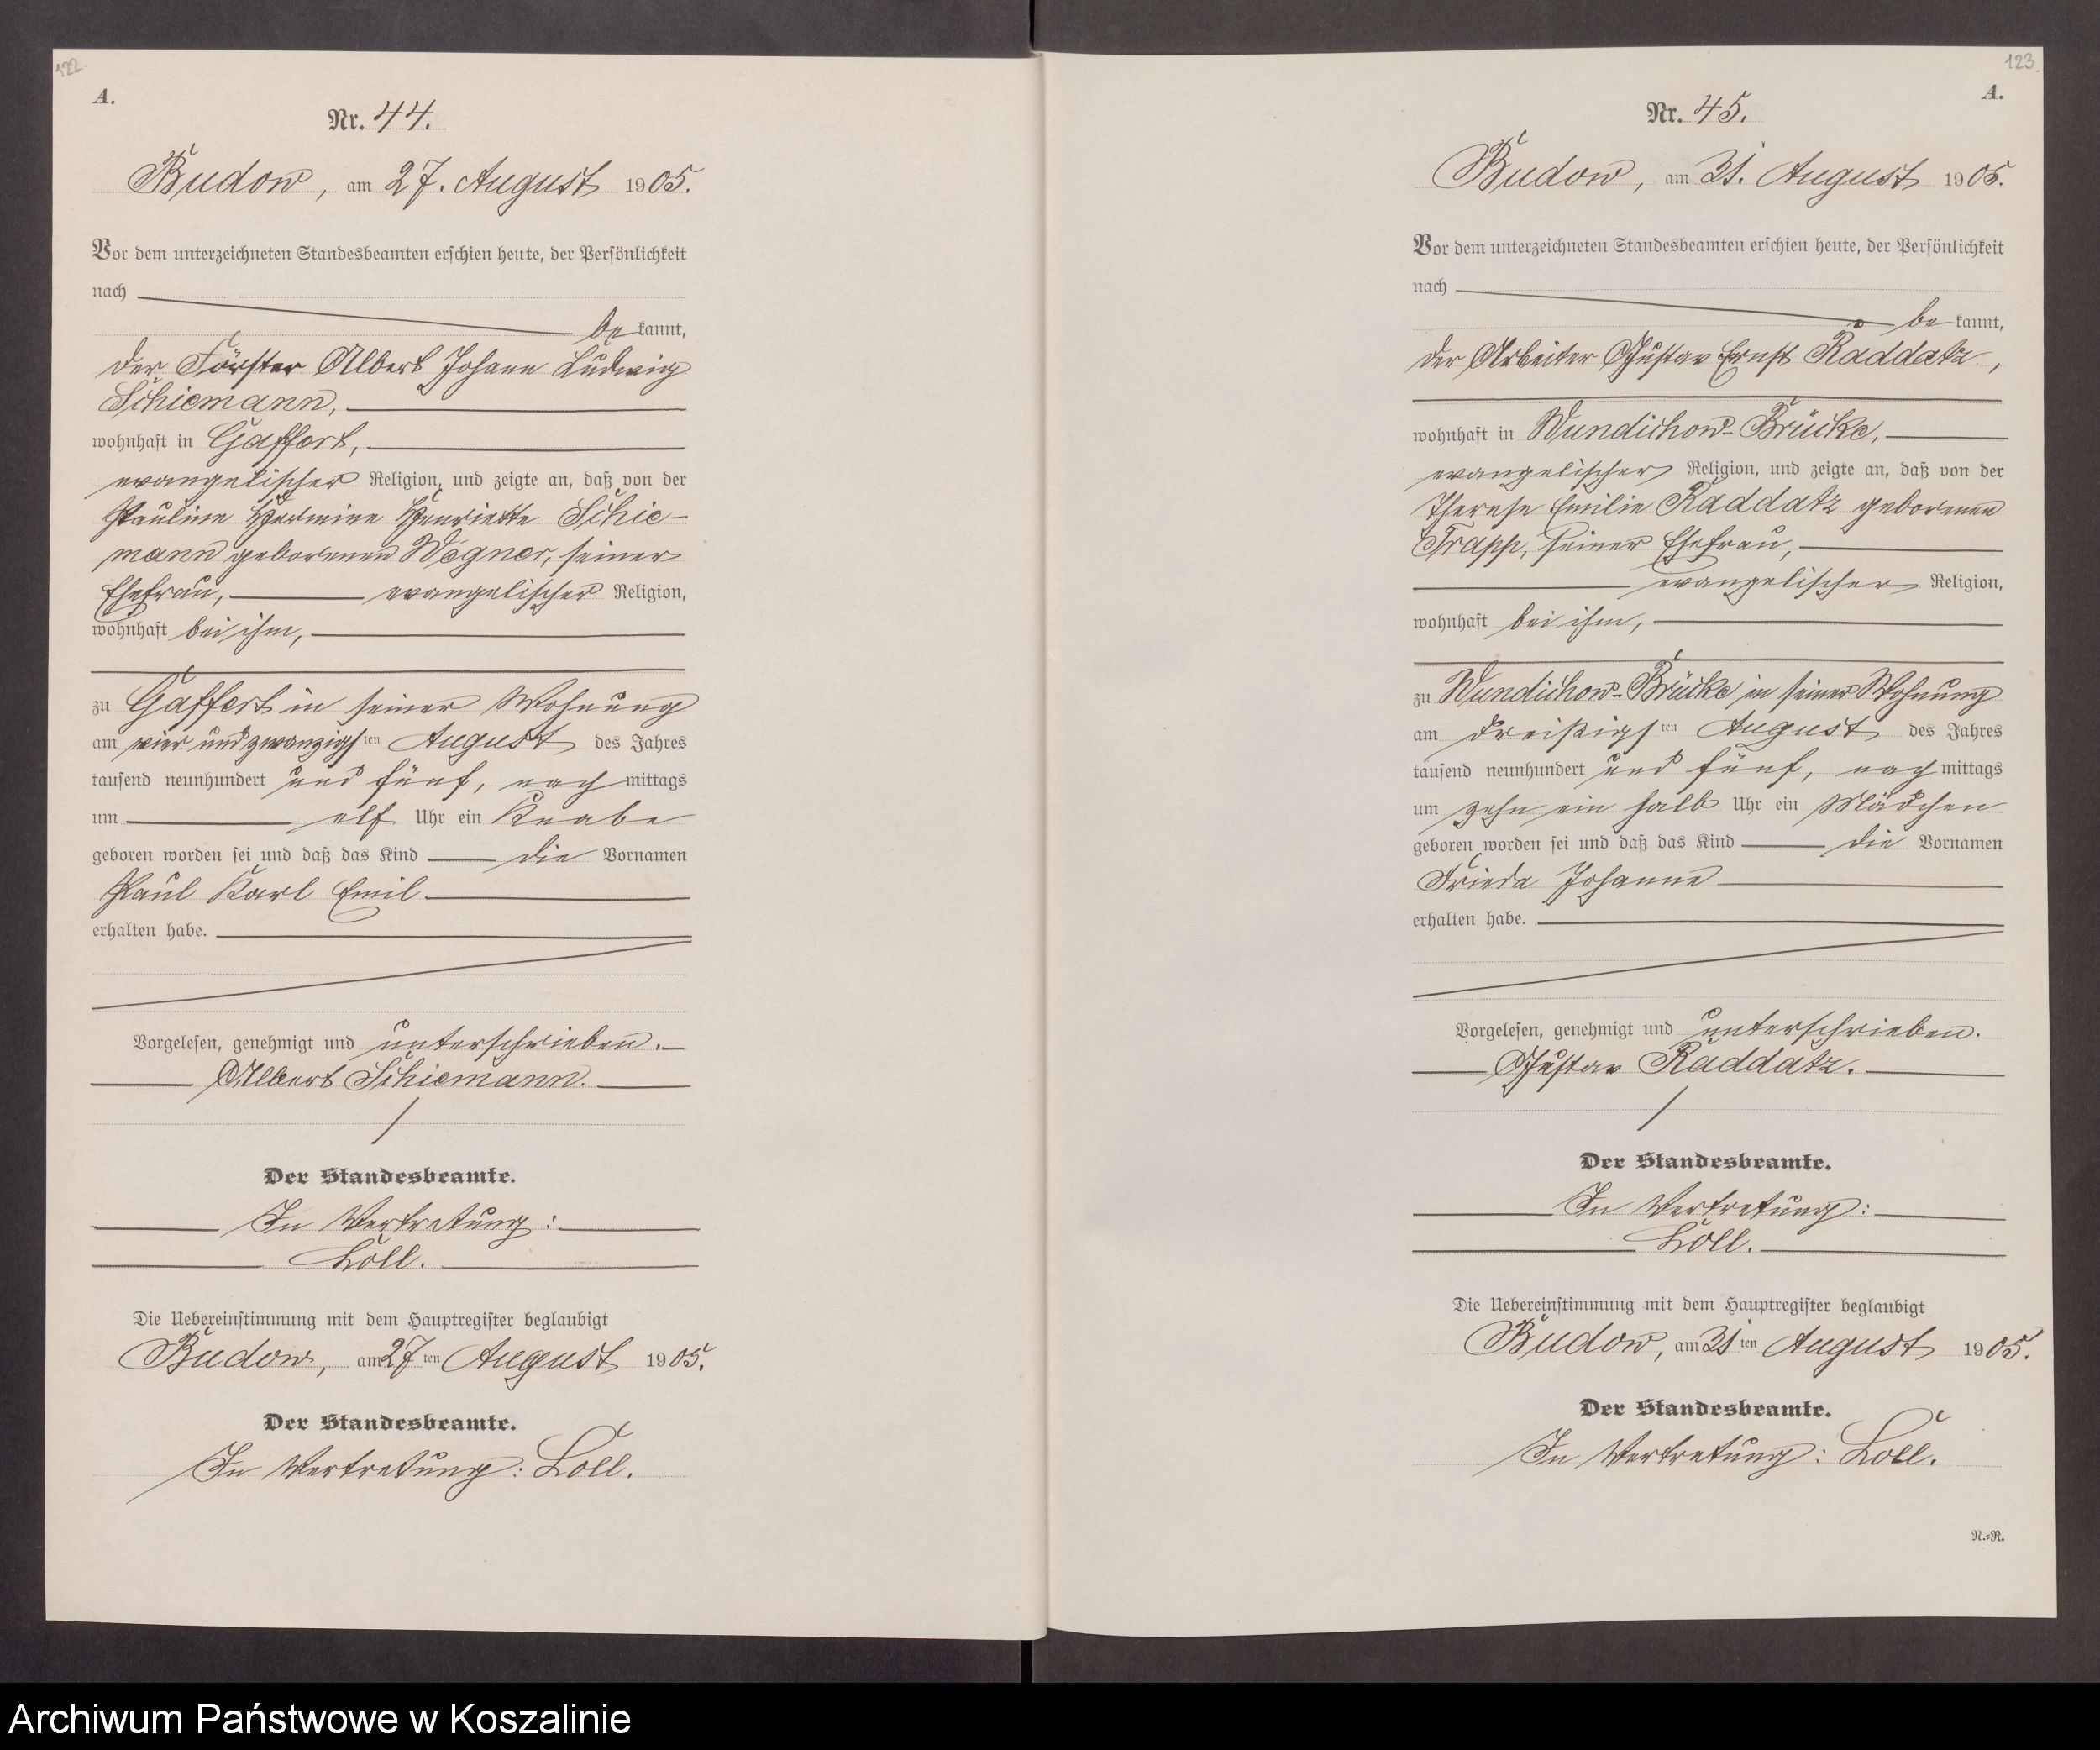 122.
A.
Nr. 44.
Budow, am 27. August 1905.
Vor dem unterzeichneten Standesbeamten erschien heute, der Persönlichkeit
nach
be kannt,
der Förster Albert Johann Ludwig
Schiemann,
wohnhaft in Gaffert,
evangelischer Religion, und zeigte an, daß von der
Pauline Hermine Henriette Schie-
mann geborenen Wegner, seiner
Ehefrau, evangelischer Religion,
wohnhaft bei ihm,
zu Gaffert in seiner Wohnung
am vier und zwanzigsten August des Jahres
tausend neunhundert und fünf, nach mittags
um elf Uhr ein Knabe
geboren worden sei und daß das Kind die Vornamen
Paul Karl Emil
erhalten habe.
Vorgelesen, genehmigt und unterschrieben.
Albert Schiemann.
Der Standesbeamte.
In Vertretung:
Löll.
Die Uebereinstimmung mit dem Hauptregister beglaubigt
Budow, am 27ten August 1905.
Der Standesbeamte.
In Vertretung: Loll.
123.
A.
Nr. 45.
Budow, am 31. August 1905.
Vor dem unterzeichneten Standesbeamten erschien heute, der Persönlichkeit
nach
be kannt,
der Arbeiter Gustav Ernst Raddatz,
wohnhaft in Wundichow-Brücke,
evangelischer Religion, und zeigte an, daß von der
Therese Emilie Raddatz geborenen
Trapp, seiner Ehefrau,
evangelischer Religion,
wohnhaft bei ihm,
zu Wundichow-Brücke in seiner Wohnung
am dreißigsten August des Jahres
tausend neunhundert und fünf, nach mittags
um zehn ein halb Uhr ein Mädchen
geboren worden sei und daß das Kind die Vornamen
Frieda Johanne
erhalten habe.
Vorgelesen, genehmigt und unterschrieben.
Gustav Raddatz.
Der Standesbeamte.
In Vertretung:
Loll.
Die Uebereinstimmung mit dem Hauptregister beglaubigt
Budow, am 31ten August 1905.
Der Standesbeamte.
In Vertretung: Loll.
N.=R.
Archiwum Państwowe w Koszalinie